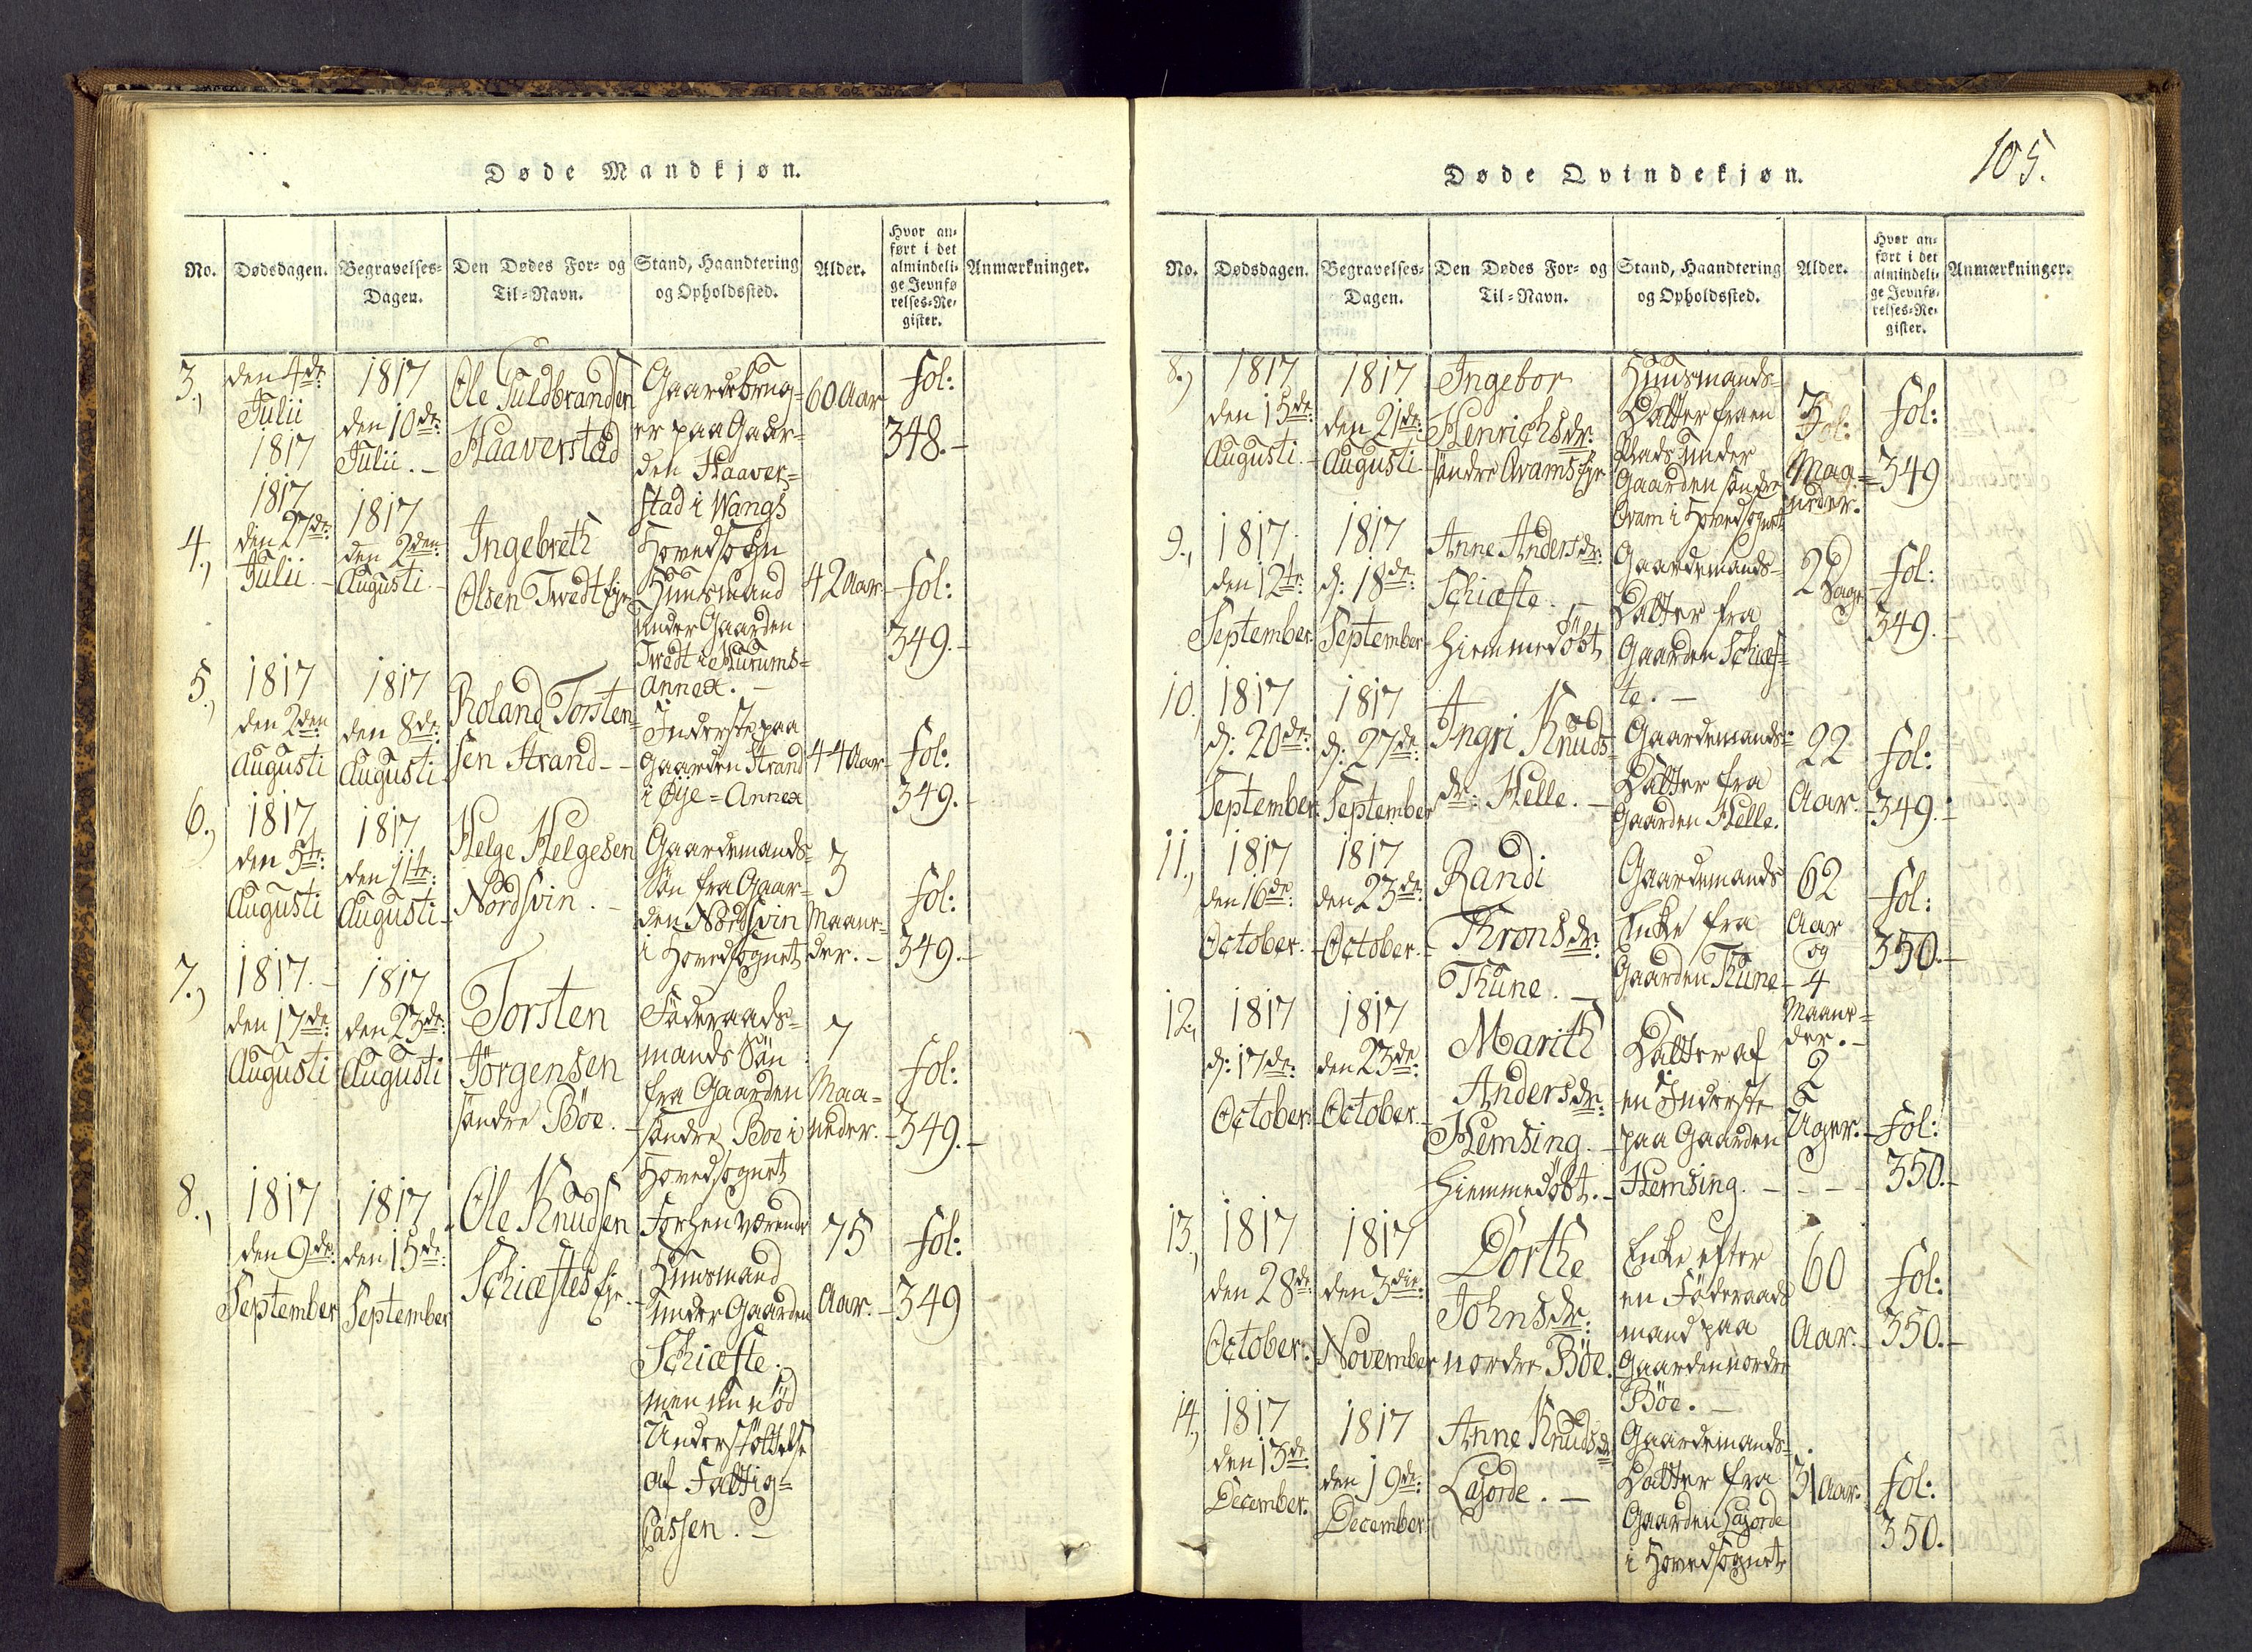 Døde Mandkjøn.
No.
Dødsdagen.
Begravelses-
Dagen.
Den Dødes For- og
Til-Navn.
Stand, Haandtering
og Opholdssted.
Alder.
Hvor an-
ført i det
almindeli-
ge Jevnfø
relses-Re-
gister.
Anmærkninger.
3.,
den 4de
Julii
1817
1817
den 10de
Julii. -
Ole Guldbrandsen
Haaverstad
Gaardebrug=
er paa Gaar=
den Haaver=
stad i Wangs
Hovedsogn
60 Aar
fol:
348. -
4.,
1817
den 27de
Julii. -
1817
den 2den
Augusti -
Ingebreth
Olsen Twedt Eje
Huusmand
under Gaarden
Twedt i Hurums=
Annex. -
42 Aar
fol:
349. -
5.,
1817
den 2den
Augusti
1817
den 8de
Augusti
Roland Torsten=
sen Strand - -
Inderste paa
Gaarden Strand
i Øije=Annex
44 Aar
fol:
349. -
6.,
1817
den 5te
Augusti
1817
den 11te
Augusti -
Helge Helgesen
Nordsvin. -
Gaardemands=
Søn fra Gaar=
den Nordsvin
i Hovedsognet
3
Maane=
der. -
fol:
349. -
7.,
1817. -
den 17de
Augusti
1817
den 23de
Augusti
Torsten
Jörgensen
søndre Böe. -
Föderaads=
mands Søn
fra Gaarden
søndre Boe i
Hovedsognet
7
Maa=
neder. -
fol:
349. -
8.,
1817
den 9de
September
1817
den 15de
September
Ole Knudsen
Schiæstes Eje. -
Forhen værende
Huusmand
under Gaarden
Schiæste.
men nu nöd
Understöttelse
af Fattig=
Cassen. -
75
Aar. -
fol:
349
105.
Døde Qvindekjøn.
No.
Dødsdagen.
Begravelses-
Dagen.
Den Dødes For- og
Til-Navn.
Stand, Haandtering
og Opholdssted.
Alder.
Hvor an-
ført i det
almindeli-
ge Jevnfø-
relses-Re-
gister.
Anmærkninger.
8.,
1817
den 15de
Augusti. -
1817
den 21de
Augusti -
Ingebor
Henrichsdr:
søndre Qvams Eje
Huusmands=
Datter fra en
Plads under
Gaarden søndre
Qvam i Hovedsognet
3
Maa=
neder.
fol:
349
9.,
1817.
den 12te
September
1817
d: 18de
September
Anne Andersdr:
Schiæste. -
hiemmedöbt
Gaardemands=
Datter fra
Gaarden Schiæs=
te. -
2 Dage
fol:
349. -
10.,
1817
d: 20de
September
1817
d: 27de
September
Ingri Knuds=
dr: Helle. -
Gaardemands=
Datter fra
Gaarden Helle.
22
Aar.
fol:
349. -
11.,
1817
den 16de
October. -
1817
den 23de
October. -
Randi
Thronsdr:
Thune. -
Gaardemands
Enke fra
Gaarden Thune -
62
Aar
og
4
Maane=
der. -
fol:
350. -
12.,
1817
d: 17de
October.
1817
den 23de
October. -
Marith
Andersdr:
Hemsing. -
hiemmedöbt. -
Datter af
en Inderste
paa Gaarden
Hemsing. -
2
Uger. -
fol:
350. -
13.,
1817
den 28de
October.
1817
den 3die
November
Dorthe
Johnsdr:
nordre Böe.
Enke efter
en Föderaads
mand paa
Gaarden nordre
Böe. -
60
Aar. -
fol:
350. -
14.,
1817
den 13de
December.
1817
den 19de
December
Anne Knudsdr
Lajorde. -
Gaardemands=
Datter fra
Gaarden Lajorde
i Hovedsognet
31 Aar.
fol:
350.